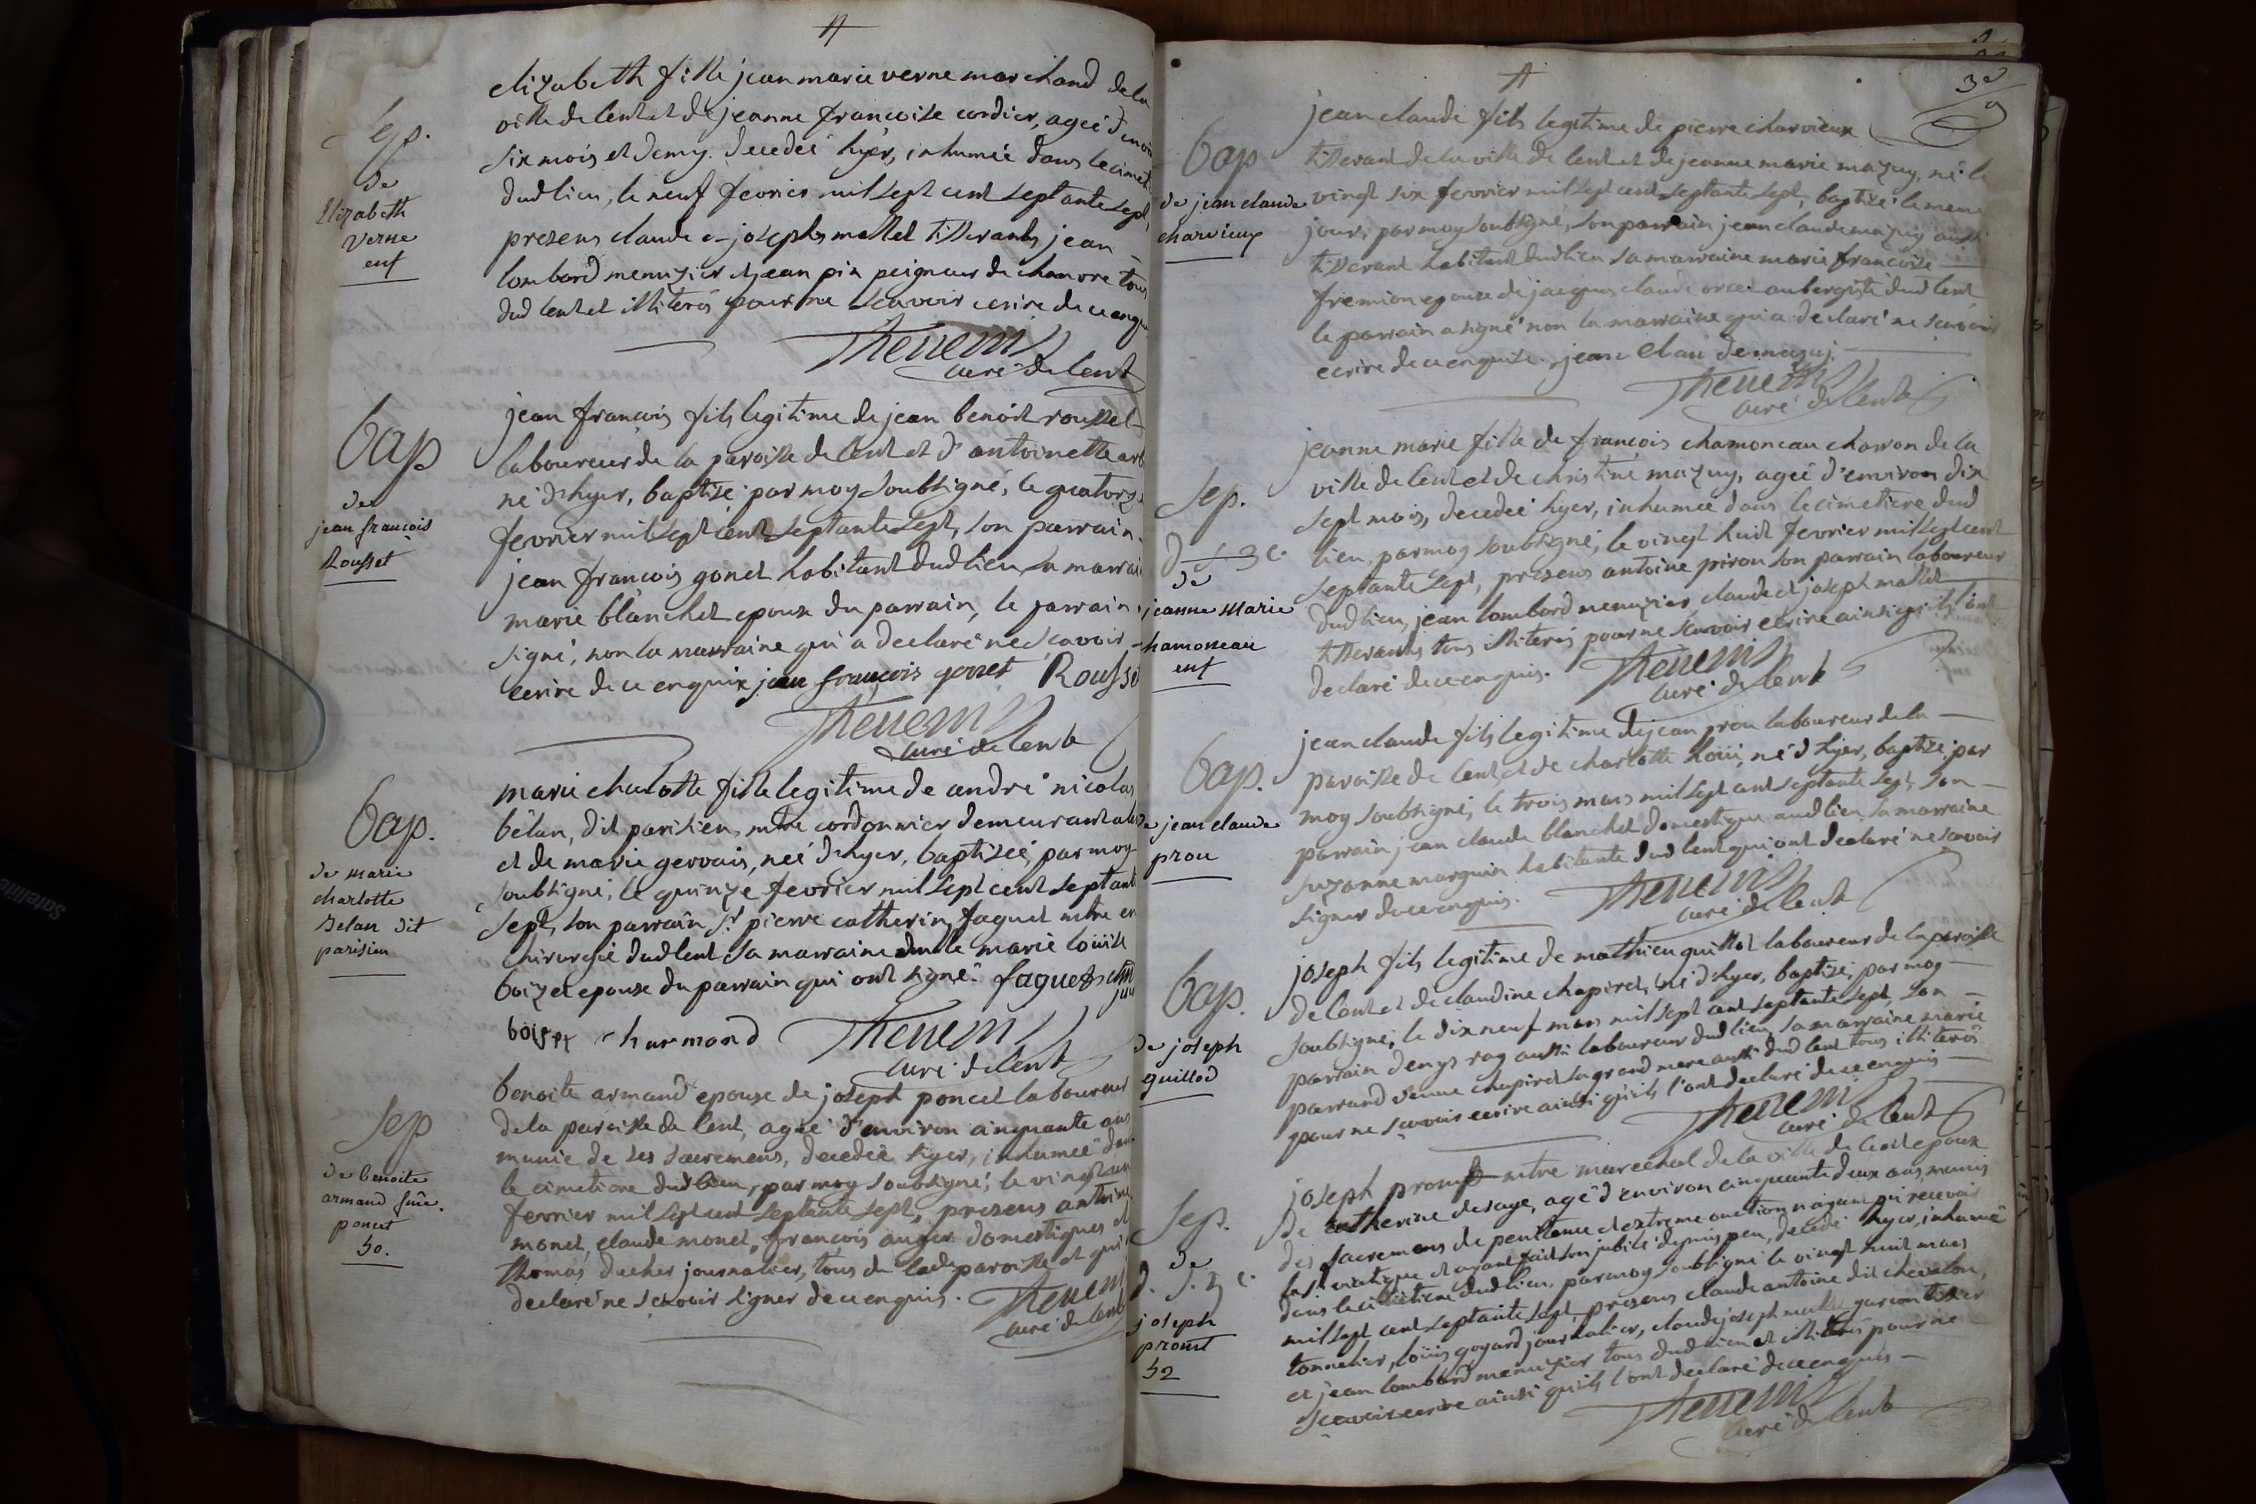 Sep.
de
Elizabeth
Verne
enf
elizabeth fille jean marie verne marchand de la
ville de lent et de jeanne francoise cordier, ageé d'envir
six mois et demy. decedeé hyer, inhumeé dans le cimet
dud lieu, le neuf fevrier mil sept cent septante sept,
presens claude et josephs mallet tisserants, jean
lombard menuzier et jean pin peigneur de chanvre tous
dud lent et illiterés pour ne scavoir ecrire de ce enqui
Thevenin
curé de lent
Bap
de
jean francois
Rousset
jean françois fils legitime de jean benoit rousset
laboureur de la paroisse de lent et d'antoinette
né d'hyer, baptizé par moy soubsigné, le quatorze
fevrier mil sept cent septante sept, son parrain
jean francois gonet habitant dud lieu sa marrai
marie blanchet epouse du parrain, le parrain
signé, non la marraine qui a declaré ne scavoir
ecrire de ce enquise jean françois gonet Rousse
Thevenin
curé de lent
Bap.
de marie
charlotte
Belan dit
parisien
marie charlotte fille legitime de andré nicolas
bélan, dit parisien, mtre cordonnier demeurant
et de marie gervais, neé d'hyer, baptizeé, par moy
soubsigné, le quinze fevrier mil sept cent septante
sept, son parrain sr. pierre catherin faguet mtre en
chirurgie dud lent sa marraine marie loüise
boizet epouse du parrain qui ont signé. faguet
boizet charmond Thevenin
curé de lent
Sep
de benoite
armand fme.
poncet
50.
benoite armand epouse de joseph poncet laboureur
de la paroisse de lent, ageé d'environ cinquante ans
munie de ses sacremens, decedeé hyer, inhumeé dans
le cimetiere dud lieu, par moy soubsigné, le vingt
fevrier mil sept cent septante sept, presens antoine
monet, claude monet, françois auger domestiques et
thomas ducher journalier, tous de lade paroisse et qui
declaré ne scavoir signer de ce enquis. Thevenin
curé de lent
Bap
de jean claude
charvieux
jean claude fils legitime de pierre charvieux
tisserant de la ville de lent et de jeanne marie mazuy, né le
vingt six fevrier mil sept cent septante sept, baptizé le meme
jour, par moy soubsigné, son parrain jean claude mazuy aussi
tisserant habitant dud lieu sa marraine marie francoise
fremion epouse de jacques claude orcet aubergiste dud lent
le parrain a signé non la marraine qui a declaré ne scavoir
ecrire de ce enquise. jean Claude mazuj.
Thevenin
curé de lent
Sep.
de
jeanne marie
hamonau
enf
jeanne marie fille de françois chamoneau charron de la
ville de lent et de christine mazuy, ageé d'environ dix
sept mois, decedeé hyer, inhumeé dans le cimetiere dud
lieu, par moy soubsigné, le vingt huit fevrier mil sept cent
septante sept, presens antoine piron son parrain laboureur
dud lieu, jean lombard menuzier, claude et joseph mallet
tisserants tous illiterés pour ne scavoir ecrire ainsi qu'ils l'ont
declaré de ce enquis. Thevenin
curé de lent
Bap.
de jean claude
prou
jean claude fils legitime de jean prou laboureur de la
paroisse de lent, et de charlotte loüi, né d'hyer, baptizé par
moy soubsigné, le trois mars mil sept cent septante sept, son
parrain jean claude blanchet domestique aud lieu, sa marraine
suzanne marguin habitante dud lent qui ont declaré ne scavoir
signer de ce enquis. Thevenin
curé de lent
Bap.
de joseph
guillod
joseph fils legitime de mathieu guillot laboureur de la paroisse
de lent et de claudine chapiret, né d'hyer, baptizé, par moy
soubsigné, le dix neuf mars mil sept cent septante sept, son
parrain denys ray aussi laboureur dud lieu, sa marraine marie
parrand veuve chapiret sa grand mere aussi dud lent tous illiterés
pour ne scavoir ecrire ainsi qu'ils l'ont declaré de ce enquis
Thevenin
curé de lent
Sep.
de
joseph
promt
52
joseph promt mtre marechal de la ville de lent epoux
de catherine desage, agé d'environ cinquante deux ans, munis
des sacremens de penitence et extreme onction n'ayant pu recevoir
le st viatique et ayant fait son jubilé depuis peu, decedé hyer, inhumé
dans le cimetiere dud lieu, par moy soubsigné le vingt huit mars
mil sept cent septante sept, presens claude antoine dit chevalon,
tonnelier, loüis goyard journalier, claude joseph mallet garcon tissier
et jean lombard menuzier tous dud lieu et illiterés pour ne
scavoir ecrire ainsi qu'ils l'ont declaré de ce enquis
Thevenin
curé de lent